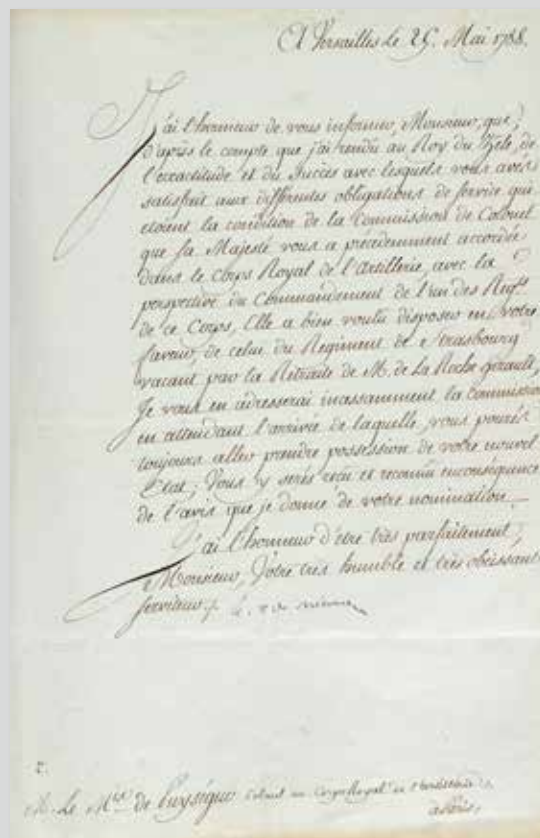 A Versailles le 25. Mai 1788.
J'ai l'honneur de vous informer, Monsieur, que,
d'après le compte que j'ai rendu au Roy du Zele, de
l'exactitude et du succès avec lesquels vous avés
satisfait aux différentes obligations de service qui
etoient la condition de la Commission de Colonel
que sa Majesté vous a précédemment accordée
dans le Corps Royal de l'Artillerie, avec la
perspective du Commandement de l'un des Regts.
de ce Corps, Elle a bien voulu disposer en votre
faveur, de celui du Regiment de Strasbourg
vacant par la Retraite de M. de La Roche girault,
Je vous en adresserai incessamment la commission
en attendant l'arrivée de laquelle, vous pourés
toujours aller prendre possession de votre nouvel
Etat, Vous y serés reçu et reconnu en conséquence
de l'avis que je donne de votre nomination.
J'ai l'honneur d'etre très parfaitement,
Monsieur, Votre très humble et très obeissant
serviteur.
M. Le Mis. de Puysegur Colonel au Corps Royal de l'artillerie
a Paris.